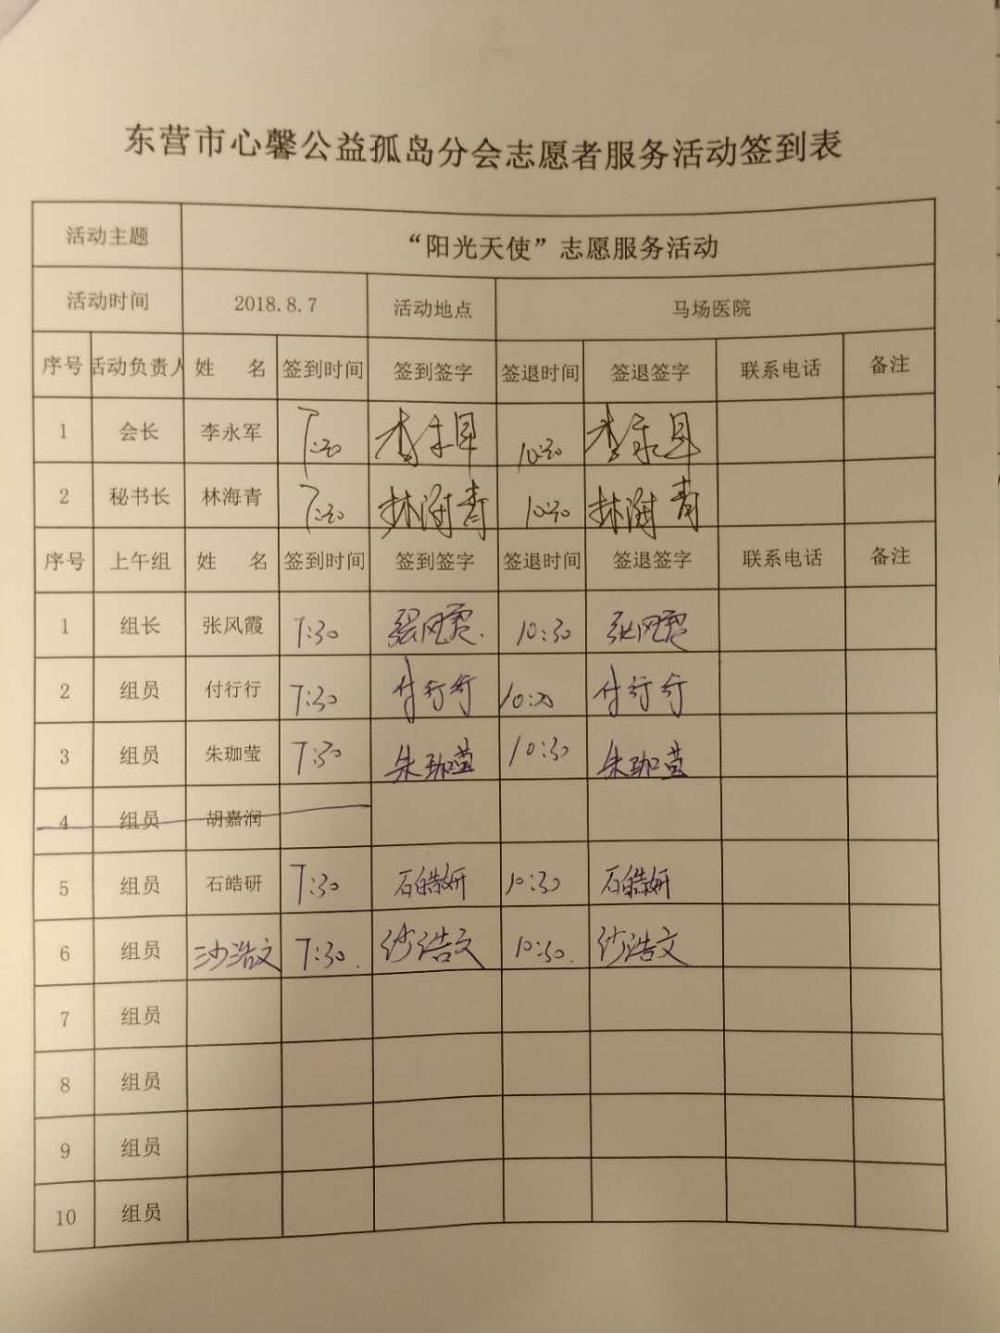 东营市心馨公益孤岛分会志愿者服务活动签到表
活动主题 “阳光天使”志愿服务活动
活动时间 2018.8.7 活动地点 马场医院
序号 活动负责人 姓 名 签到时间 签到签字 签退时间 签退签字 联系电话 备注
1 会长 李永军 7:30 李永军 10:30 李永军
2 秘书长 林海青 7:30 林海青 10:30 林海青
序号 上午组 姓 名 签到时间 签到签字 签退时间 签退签字 联系电话 备注
1 组长 张风霞 7:30 张风霞. 10:30 张风霞
2 组员 付行行 7:30 付行行 10:30 付行行
3 组员 朱珈莹 7:30 朱珈莹 10:30 朱珈莹
4 组员 胡嘉润
5 组员 石皓研 7:30 石皓妍 10:30 石皓妍
6 组员 沙浩文 7:30. 沙浩文 10:30. 沙浩文
7 组员
8 组员
9 组员
10 组员